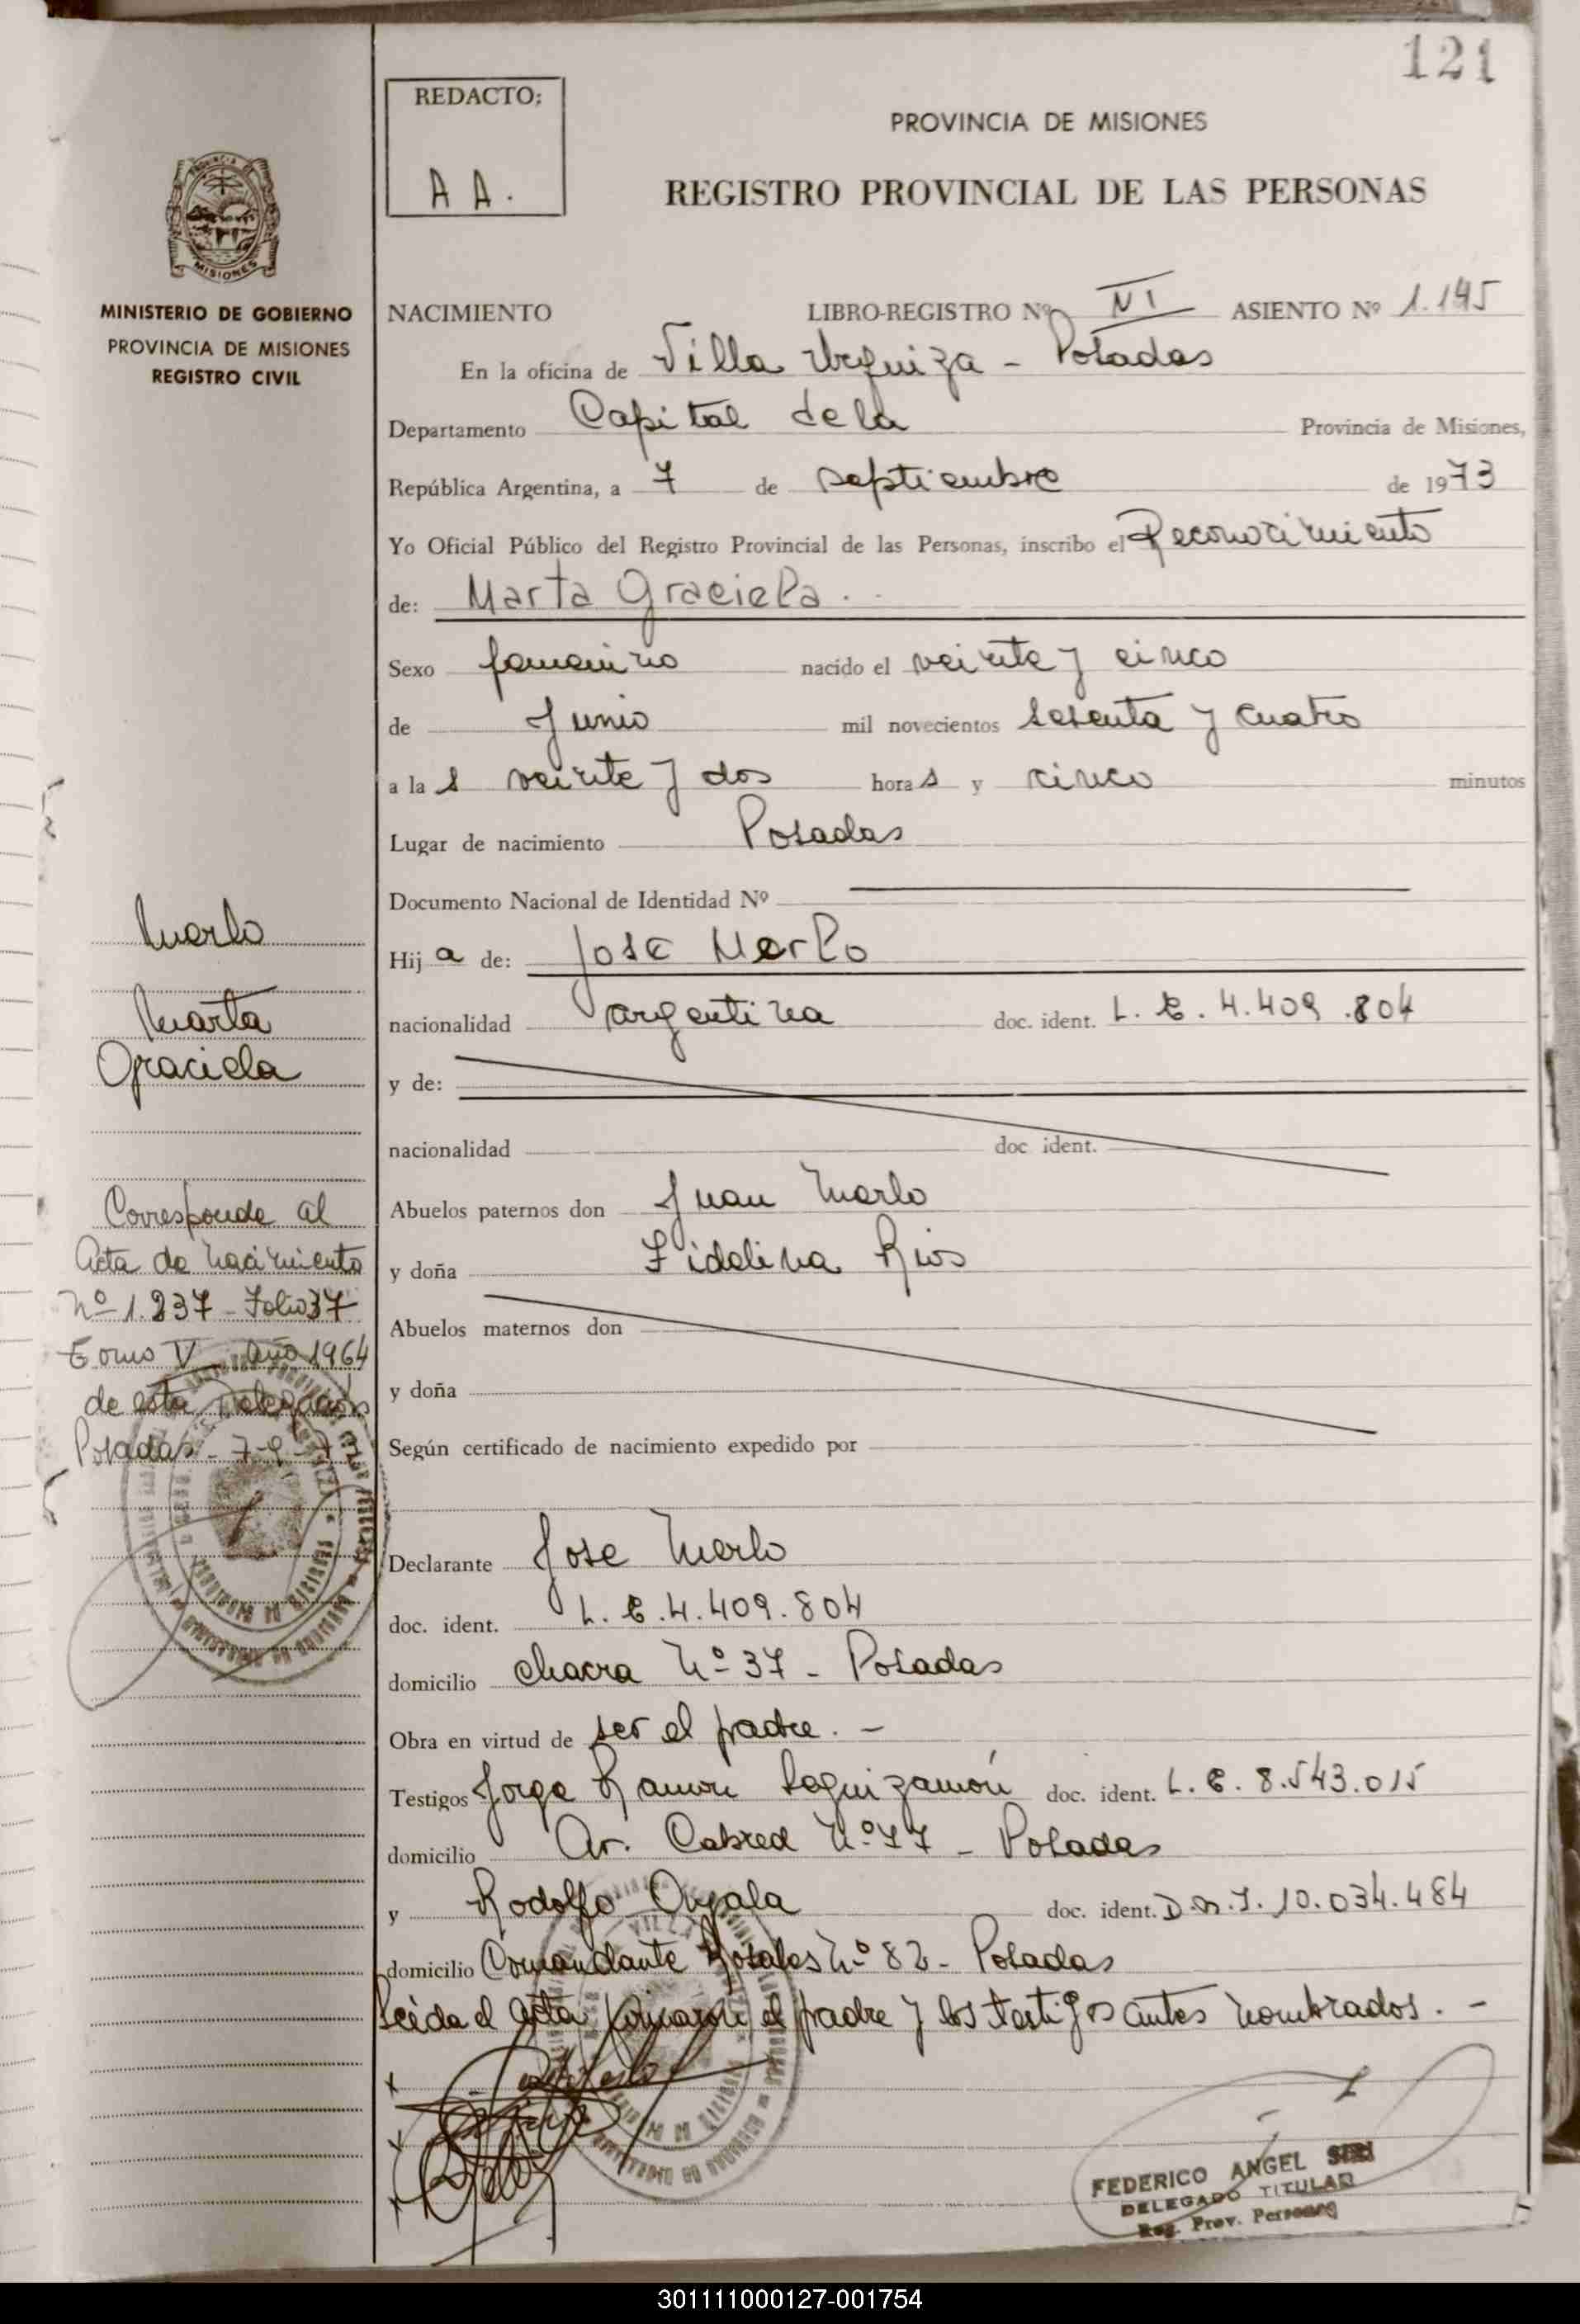 121
REDACTO:
A A.
PROVINCIA DE MISIONES
REGISTRO PROVINCIAL DE LAS PERSONAS
MISIONES
MINISTERIO DE GOBIERNO
PROVINCIA DE MISIONES
REGISTRO CIVIL
NACIMIENTO LIBRO-REGISTRO Nº VI ASIENTO Nº 1.145
En la oficina de Villa Urquiza - Posadas
Departamento Capital de la Provincia de Misiones,
República Argentina, a 7 de septiembre de 1973
Yo Oficial Público del Registro Provincial de las Personas, inscribo el Reconocimiento
de: Marta Graciela.
Sexo femenino nacido el veinte y cinco
de Junio mil novecientos sesenta y cuatro
a la s veinte y dos hora s y cinco minutos
Lugar de nacimiento Posadas
Documento Nacional de Identidad Nº
Hij a de: José Merlo
nacionalidad argentina doc. ident. L. E. 4.409.804
y de:
nacionalidad doc ident.
Abuelos paternos don Juan Merlo
y doña Fidelina Rios
Abuelos maternos don
y doña
Según certificado de nacimiento expedido por
Declarante Jose Merlo
doc. ident. L. E. 4.409.804
domicilio chacra Nº 37 - Posadas
Obra en virtud de ser el padre. -
Testigos Jorge Ramón Leguizamón doc. ident. L. E. 8.543.015
domicilio Av. Cabred Nº 77 - Posadas
y Rodolfo Ayala doc. ident. D.N.I. 10.034.484
domicilio Comandante Rosales Nº 82 - Posadas
Leida el acta, firmaron el padre y los testigos antes nombrados. -
Merlo
Marta
Graciela
Corresponde al
Acta de Nacimiento
Nº 1.237 - Folio 37
Tomo V Año 1964
de esta Delegación
Posadas - 7-9-73
FEDERICO ANGEL SIRI
DELEGADO TITULAR
Reg. Prov. Personas
301111000127-001754